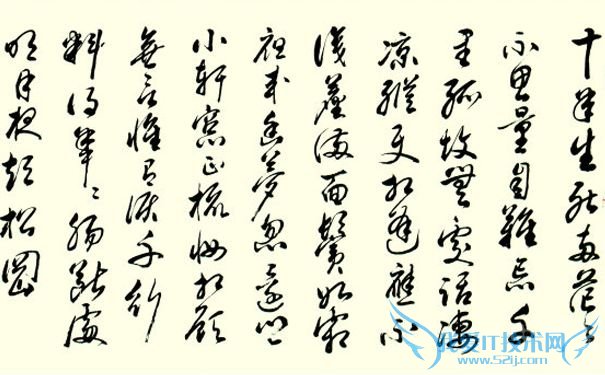 十年生死兩茫々
不思量自難忘千
里孤墳無處話淒
涼縱使相逢應不
識塵滿面鬢如霜
夜來幽夢忽還鄉
小軒窗正梳妝相顧
無言惟有淚千行
料得年々腸斷處
明月夜短松岡
我爱IT技术网
www.52ij.com